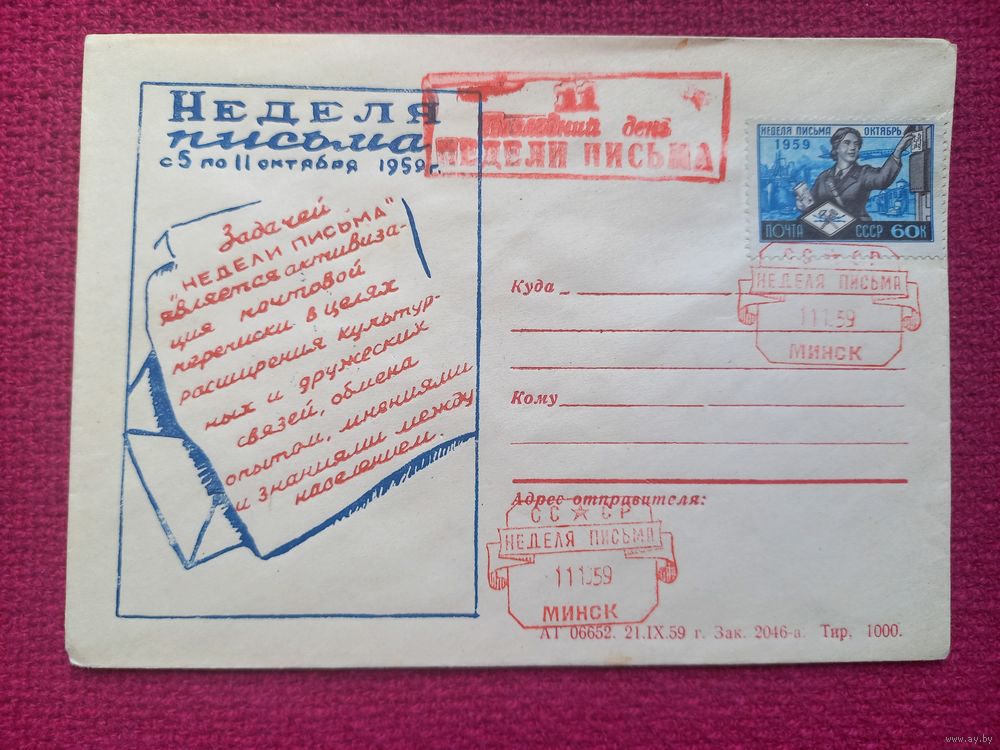 НЕДЕЛЯ
письма
с 5 по 11 октября 1959г.
Задачей
"НЕДЕЛИ ПИСЬМА"
является активиза-
ция почтовой
переписки в целях
расширения культур-
ных и дружеских
связей, обмена
опытом, мнениями
и знаниями между
населением.
11
день
НЕДЕЛИ ПИСЬМА
НЕДЕЛЯ ПИСЬМА ОКТЯБРЬ
1959
ПОЧТА СССР 60К
СС СР
НЕДЕЛЯ ПИСЬМА
59
МИНСК
Куда
Кому
Адрес отправителя:
СС СР
НЕДЕЛЯ ПИСЬМА
59
МИНСК
АТ 06652. 21.IX.59 г. Зак. 2046-а. Тир. 1000.
www.ay.by